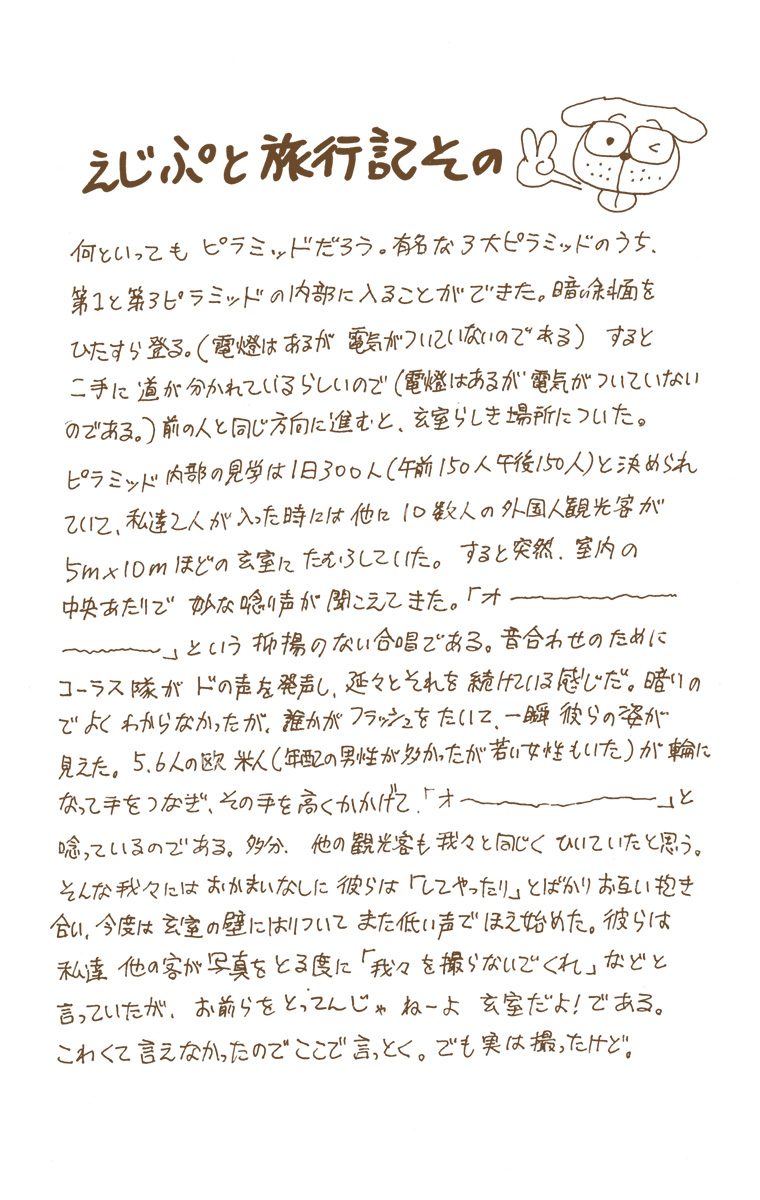 えじぷと旅行記その
何といってもピラミッドだろう。有名な3大ピラミッドのうち、
第1と第3ピラミッドの内部に入ることができた。暗い斜面を
ひたすら登る。(電燈はあるが電気がついていないのである) すると
二手に道が分かれているらしいので(電燈はあるが電気がついていない
のである。)前の人と同じ方向に進むと、玄室らしき場所についた。
ピラミッド内部の見学は1日300人(午前150人午後150人)と決められ
ていて、私達2人が入った時には他に10数人の外国人観光客が
5m×10mほどの玄室にたむろしていた。すると突然、室内の
中央あたりで妙な唸り声が聞こえてきた。「オ〜〜〜〜〜
〜〜〜」という抑揚のない合唱である。音合わせのために
コーラス隊がドの声を発声し、延々とそれを続けている感じだ。暗いの
でよくわからなかったが、誰かがフラッシュをたいて、一瞬彼らの姿が
見えた。5.6人の欧米人(年配の男性が多かったが若い女性もいた)が輪に
なって手をつなぎ、その手を高くかかげて、「オ〜〜〜〜〜」と
唸っているのである。多分、他の観光客も我々と同じくひいていたと思う。
そんな我々にはおかまいなしに彼らは「してやったり」とばかりお互い抱き
合い、今度は玄室の壁にはりついてまた低い声でほえ始めた。彼らは
私達他の客が写真をとる度に「我々を撮らないでくれ」などと
言っていたが、お前らをとってんじゃねーよ 玄室だよ!である。
こわくて言えなかったのでここで言っとく。でも実は撮ったけど。